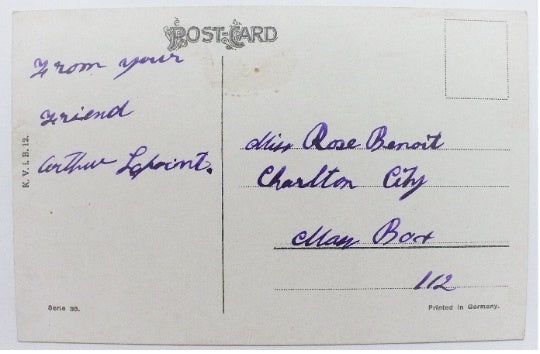 POST-CARD
From your
Friend
Arthur Lapoint.
Miss Rose Benoit
Charlton City
Mass Box
112
K. V. i. B. 12.
Serie 36.
Printed in Germany.